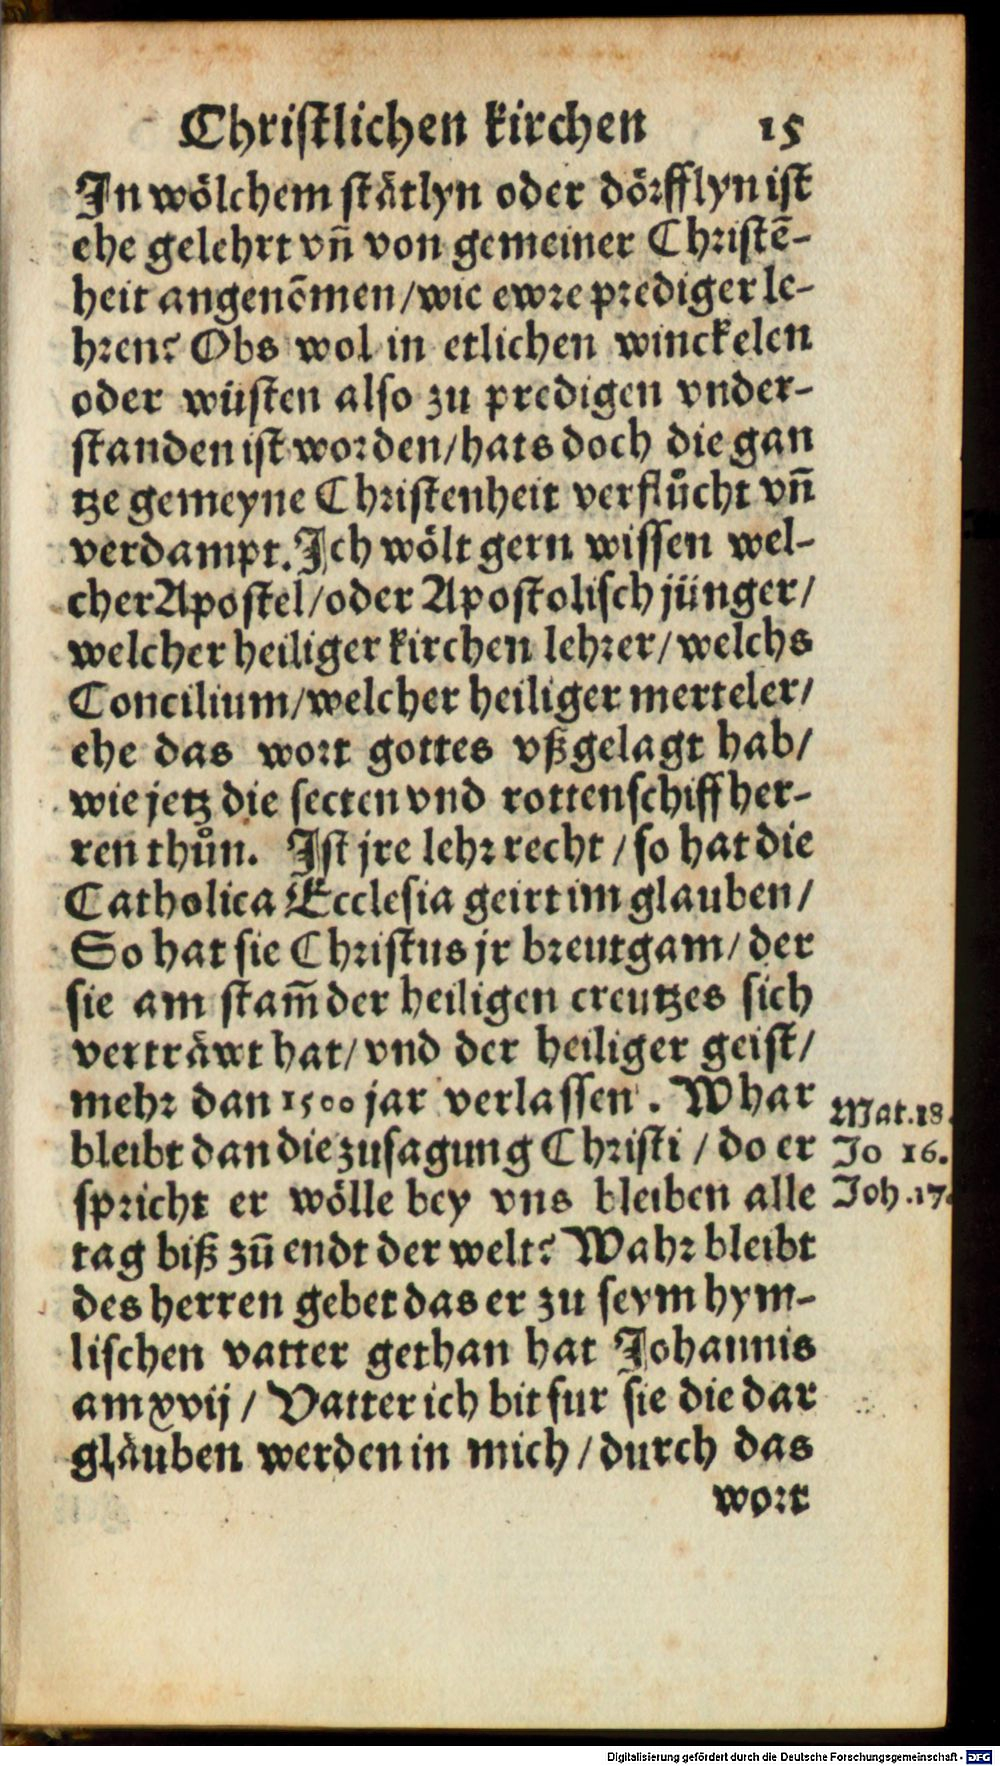 Christlichen kirchen 15
In wölchem stätlyn oder dörfflyn ist
ehe gelehrt vñ von gemeiner Christẽ-
heit angenõmen/wie ewre prediger le-
hren? Obs wol in etlichen winckelen
oder wüsten also zu predigen vnder-
standen ist worden/hats doch die gan
tze gemeyne Christenheit verflůcht vñ
verdampt. Ich wölt gern wissen wel-
cher Apostel/oder Apostolisch jünger/
welcher heiliger kirchen lehrer/welchs
Concilium/welcher heiliger merteler/
ehe das wort gottes vßgelagt hab/
wie jetz die secten vnd rottenschiffher-
ren thůn. Ist jre lehr recht/so hat die
Catholica Ecclesia geirt im glauben/
So hat sie Christus jr breutgam/der
sie am stam̃ der heiligen creutzes sich
verträwt hat/vnd der heiliger geist/
mehr dan 1500 jar verlassen. Whar
bleibt dan die zusagung Christi/do er
spricht er wölle bey vns bleiben alle
tag biß zũ endt der welt? Wahr bleibt
des herren gebet das er zu seym hym-
lischen vatter gethan hat Johannis
am xvij/Vatter ich bit fur sie die dar
gläuben werden in mich/durch das
wort
Mat.18.
Jo 16.
Joh.17.
Digitalisierung gefördert durch die Deutsche Forschungsgemeinschaft - DFG